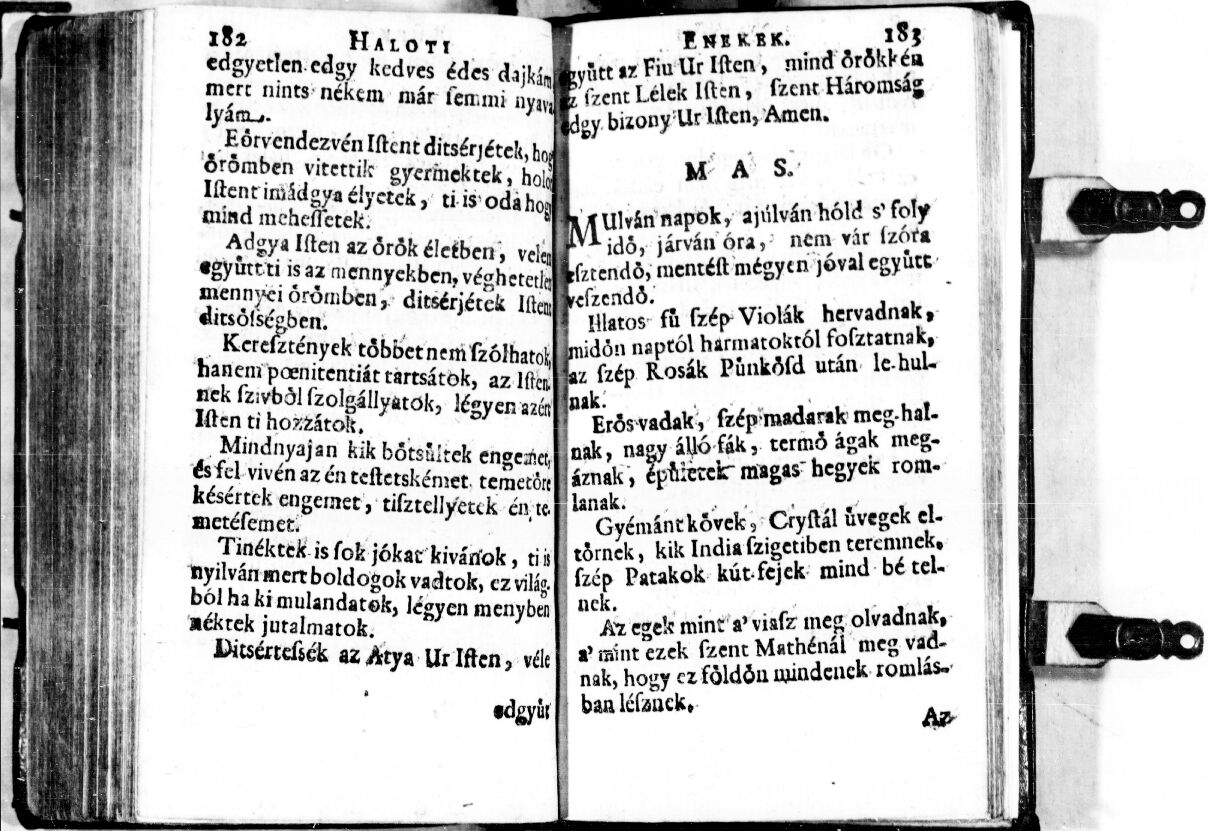 182 HALOTI
edgyetlen edgy kedves édes dajkám
mert nints nékem már ſemmi nyava
lyám.
Eörvendezvén Iſtent ditsérjétek, hog
örömben vitettik gyermektek, holot
Iſtent imádgya élyetek, ti is oda hogy
mind meheſſetek.
Adgya Iſten az örök életben, velen
együtt ti is az mennyekben, véghetetlen
mennyei örömben, ditsérjétek Iſtent
ditsöſségben.
Kereſztények többet nem ſzólhatok,
hanem pœnitentiát tartsátok, az Iſten-
nek ſzivböl ſzolgállyatok, légyen azért
Iſten ti hozzátok.
Mindnyajan kik bötsültek engemet,
és fel vivén az én teſtetskémet temetöre
késértek engemet, tiſztellyetek én te-
metéſemet.
Tinéktek is ſok jókat kivánok, ti is
nyilván mert boldogok vadtok, ez világ-
ból ha ki mulandatok, légyen menyben
néktek jutalmatok.
Ditsérteſsék az Atya Ur Iſten, véle
edgyüt
ENEKEK. 183
együtt az Fiu Ur Iſten, mind örökkén
az ſzent Lélek Iſten, ſzent Háromság
edgy bizony Ur Iſten, Amen.
M A S.
MUlván napok, ajúlván hóld s' foly
idö, járván óra, nem vár ſzóra
eſztendö, mentéſt mégyen jóval együtt
veſzendö.
Illatos fü ſzép Violák hervadnak,
midön naptól harmatoktól foſztatnak,
az ſzép Rosák Pünköſd után le-hul-
nak.
Erös vadak, ſzép madarak meg-hal-
nak, nagy álló fák, termö ágak meg-
áznak, épületek magas hegyek rom-
lanak.
Gyémánt kövek, Cryſtál üvegek el-
törnek, kik India ſzigetiben teremnek,
ſzép Patakok kút-fejek mind bé tel-
nek.
Az egek mint a' viaſz meg olvadnak,
a' mint ezek ſzent Mathénál meg vad-
nak, hogy ez földön mindenek romlás-
ban léſznek.
Az